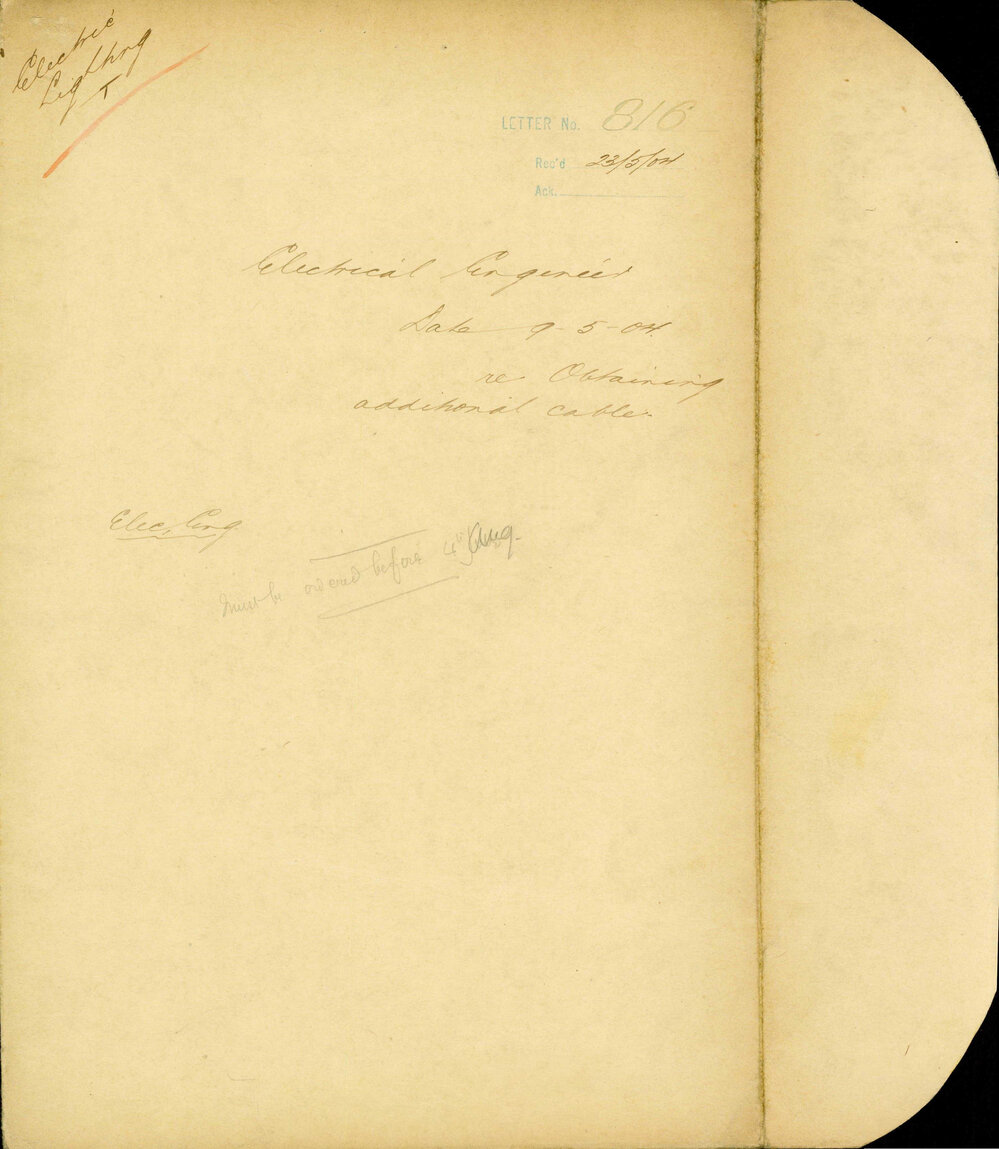 Electric
Lighting
T
LETTER No. 816
Rec'd 23/5/04
Ack.
Electrical Engineer
Date 9-5-04.
re Obtaining
additional cable.
Elec. Eng
Must be ordered before 4th Aug.